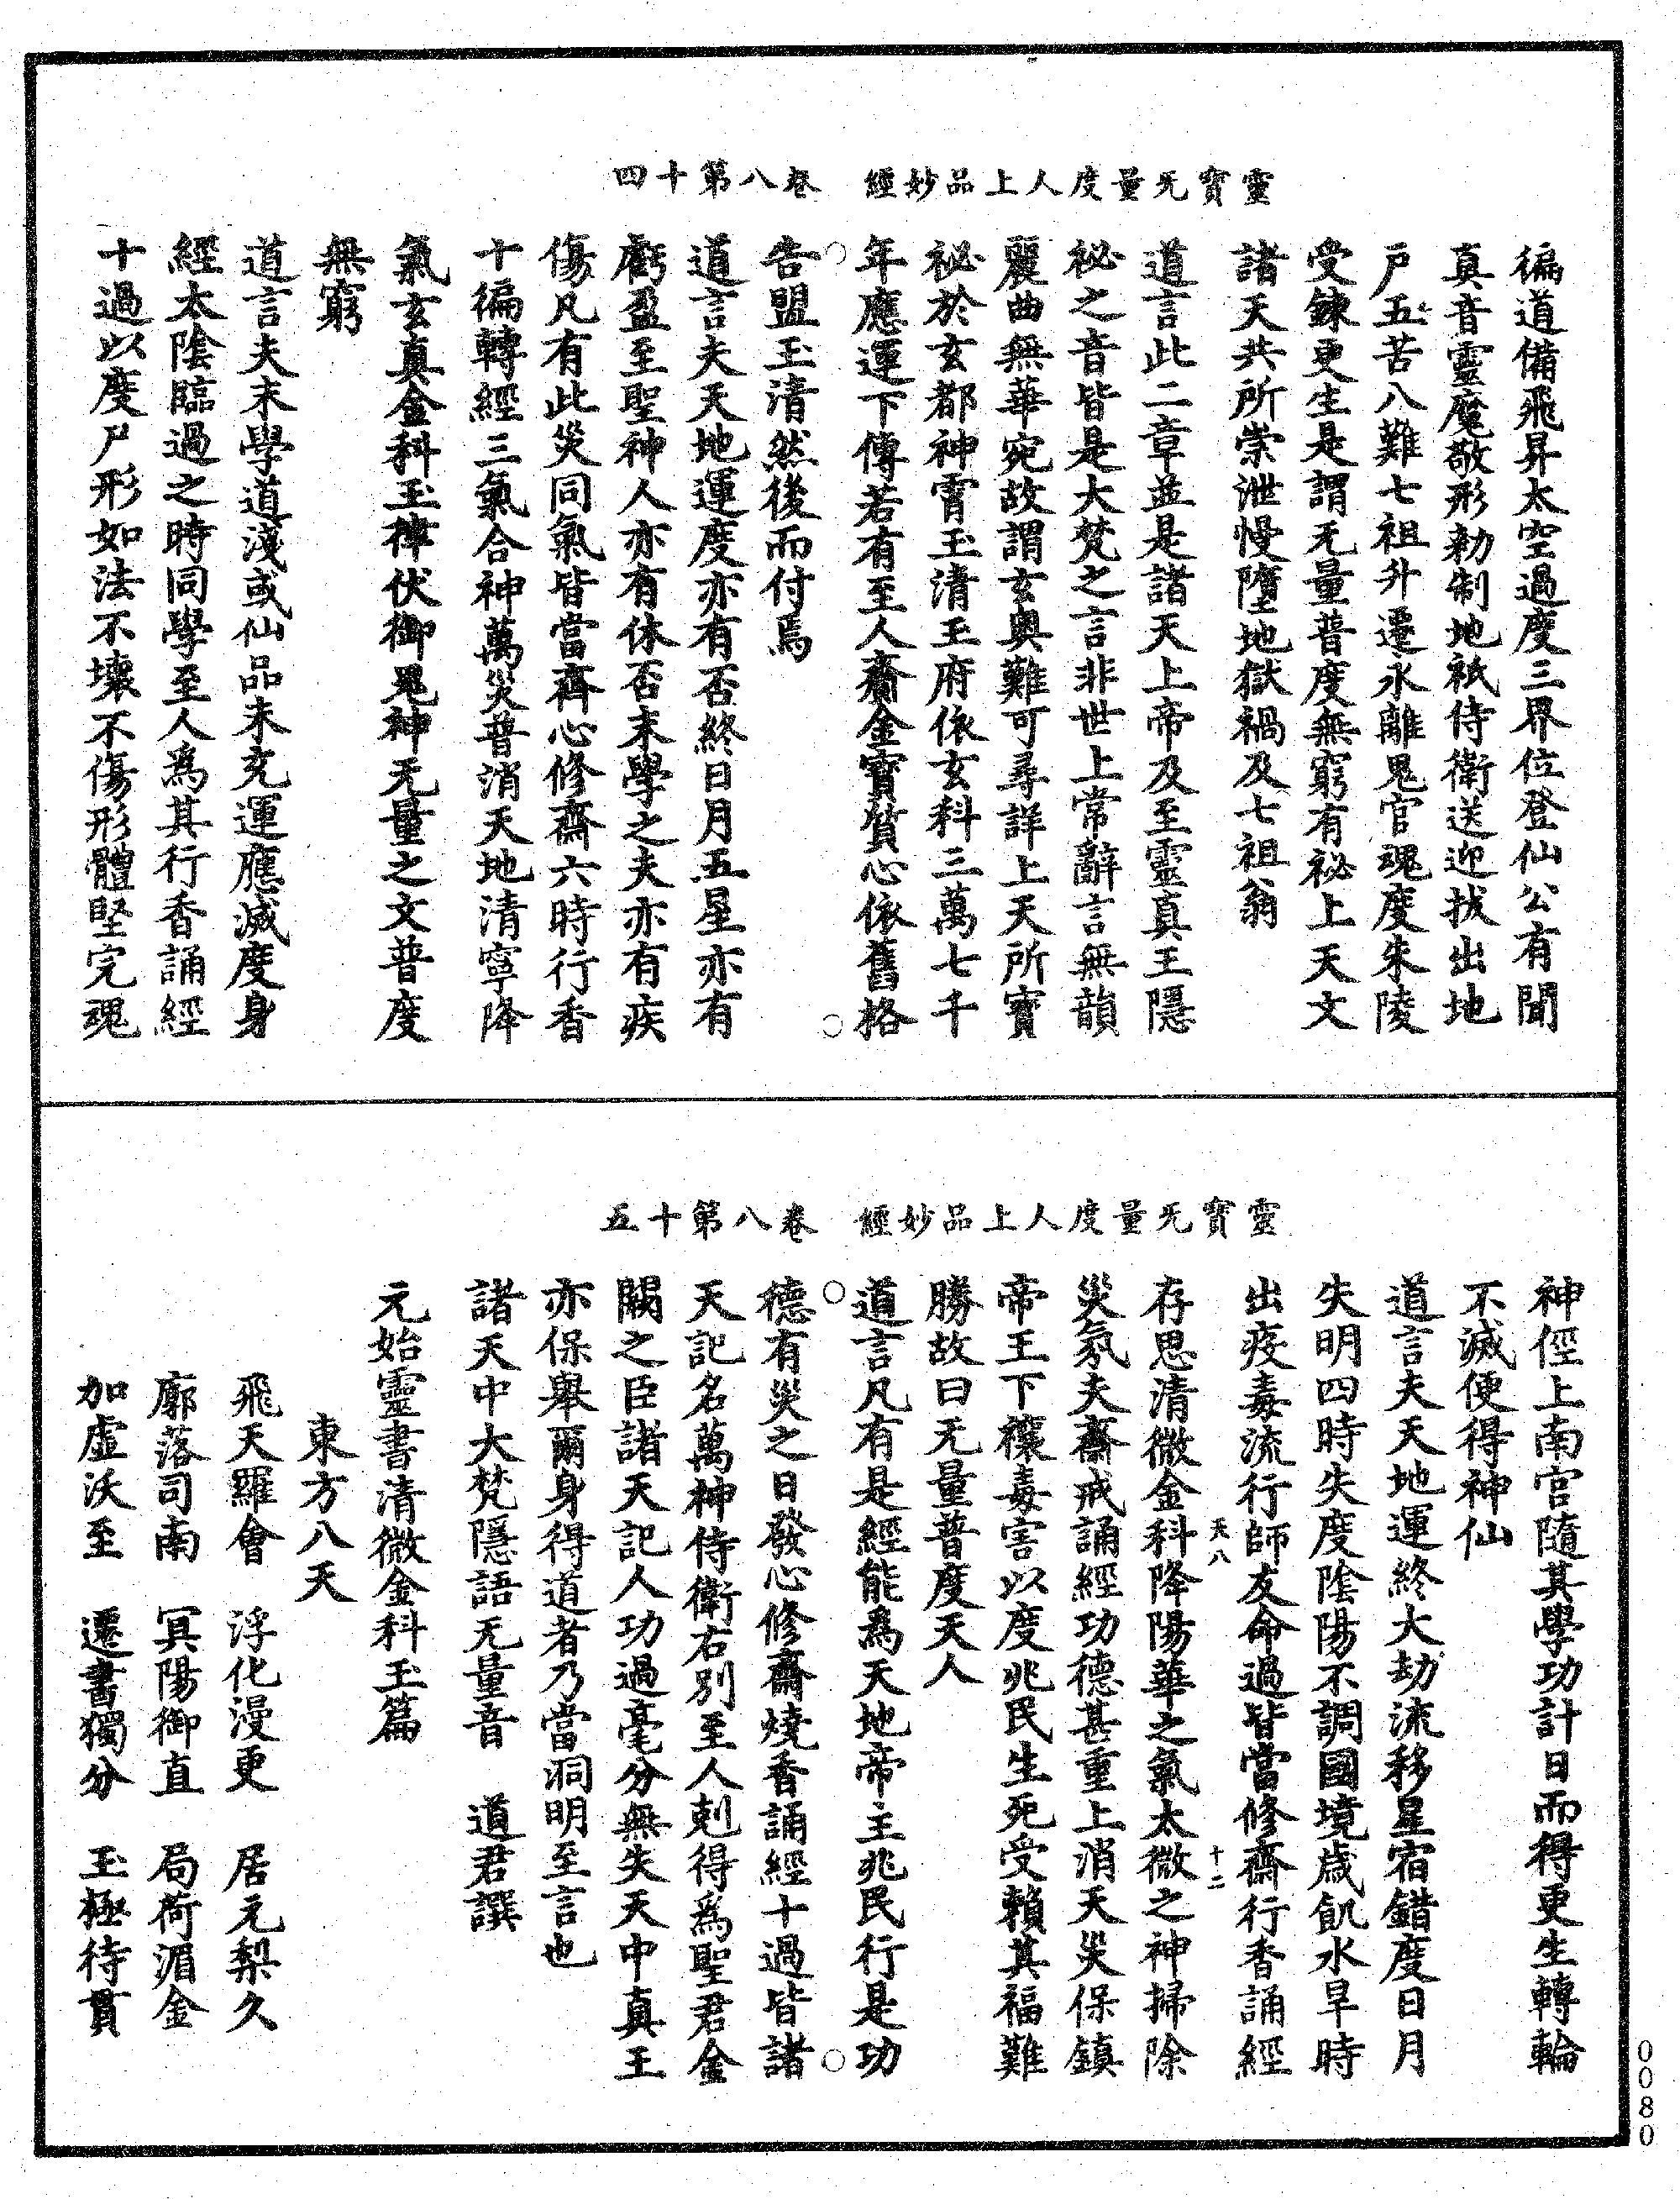 靈寶无量度人上品妙經　卷八第十四
徧道備飛昇太空過度三界位登仙公有聞
真音靈魔敬形勑制地祇侍衛送迎拔出地
戶五苦八難七祖升遷永離鬼官魂度朱陵
受鍊更生是謂无量普度無窮有祕上天文
諸天共所崇泄慢墮地獄禍及七祖翁
道言此二章並是諸天上帝及至靈真王隱
祕之音皆是大梵之言非世上常辭言無韻
麗曲無華宛故謂玄奧難可尋詳上天所寶
祕於玄都神霄玉清王府依玄科三萬七千
年應運下傳若有至人齎金寶質心依舊格
告盟玉清然後而付焉
道言夫天地運度亦有否終日月五星亦有
虧盈至聖神人亦有休否末學之夫亦有疾
傷凡有此災同氣皆當齊心修齋六時行香
十徧轉經三氣合神萬災普消天地清寧降
氣玄真金科玉律伏御鬼神无量之文普度
無窮
道言夫末學道淺或仙品未充運應滅度身
經太陰臨過之時同學至人爲其行香誦經
十過以度尸形如法不壞不傷形體堅完魂
靈寶无量度人上品妙經　卷八第十五
神徑上南宮隨其學功計日而得更生轉輪
不滅便得神仙
道言夫天地運終大劫流移星宿錯度日月
失明四時失度陰陽不調國境歲飢水旱時
出疫毒流行師友命過皆當修齋行香誦經
天八　十二
存思清微金科降陽華之氣太微之神掃除
災氛夫齋戒誦經功德甚重上消天災保鎮
帝王下禳毒害以度兆民生死受賴其福難
勝故曰无量普度天人
道言凡有是經能爲天地帝主兆民行是功
德有災之日發心修齋燒香誦經十過皆諸
天記名萬神侍衛右別至人剋得爲聖君金
闕之臣諸天記人功過毫分無失天中真王
亦保舉爾身得道者乃當洞明至言也
諸天中大梵隱語无量音　道君譔
元始靈書清微金科玉篇
東方八天
飛天羅會　浮化漫更　居元梨久
廓落司南　冥陽御直　局荷湄金
加虛沃至　遷書獨分　玉極待貫
0080